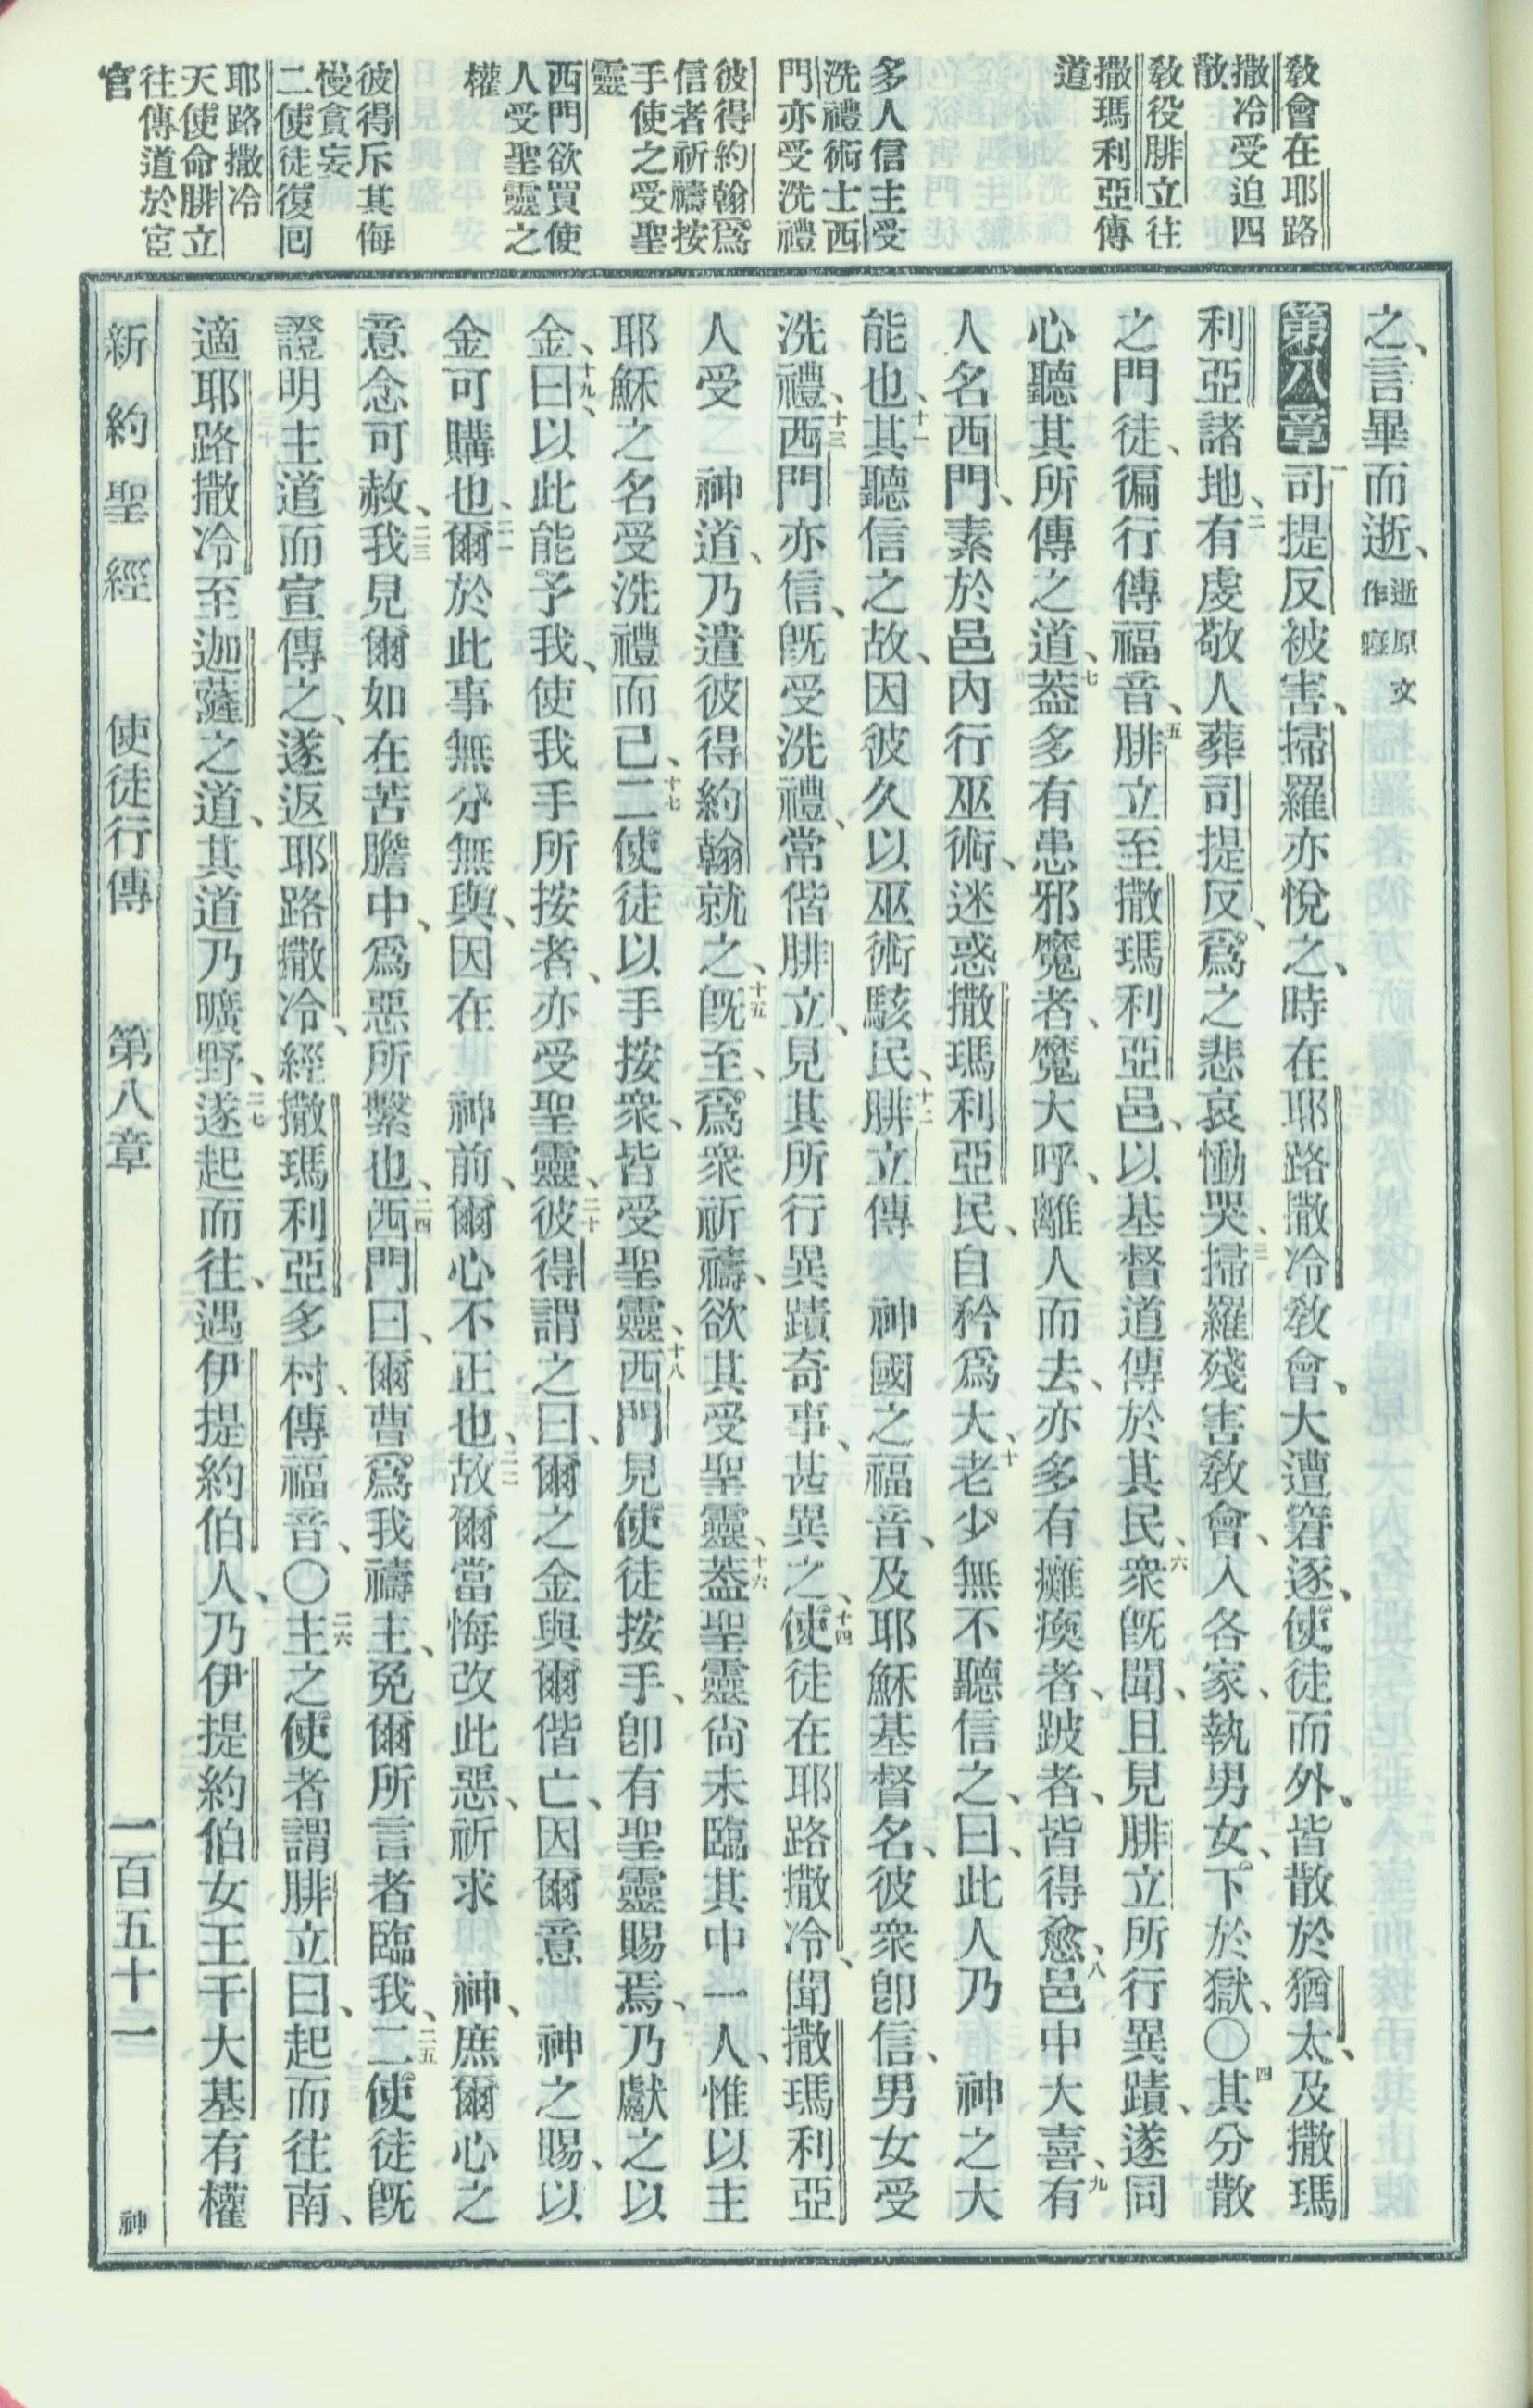 教會在耶路
撒冷受迫四
散
教役腓立往
撒瑪利亞傳
道
多人信主受
洗禮術士西
門亦受洗禮
彼得約翰爲
信者祈禱按
手使之受聖
靈
西門欲買使
人受聖靈之
權
彼得斥其侮
慢貪妄
二使徒復囘
耶路撒冷
天使命腓立
往傳道於宦
官
之、言畢而逝、逝原文
作寢
第八章 一司提反被害、掃羅亦悅之、時在耶路撒冷教會、大遭窘逐、使徒而外、皆散於猶太、及撒瑪
利亞諸地、二有虔敬人葬司提反、爲之悲哀慟哭、三掃羅殘害教會、入各家、執男女、下於獄、〇四其分散
之門徒、徧行傳福音、五腓立至撒瑪利亞邑、以基督道傳於其民、六衆旣聞、且見腓立所行異蹟、遂同
心聽其所傳之道、七葢多有患邪魔者、魔大呼、離人而去、亦多有癱瘓者、跛者、皆得愈、八邑中大喜、九有
人名西門、素於邑內行巫術、迷惑撒瑪利亞民、自矜爲大、十老少無不聽信之、曰、此人乃 神之大
能也、十一其聽信之故、因彼久以巫術駭民、十二腓立傳 神國之福音、及耶穌基督名、彼衆卽信、男女受
洗禮、十三西門亦信、旣受洗禮、常偕腓立、見其所行異蹟奇事、甚異之、十四使徒在耶路撒冷、聞撒瑪利亞
人受 神道、乃遣彼得約翰就之、十五旣至、爲衆祈禱、欲其受聖靈、十六葢聖靈尙未臨其中一人、惟以主
耶穌之名受洗禮而已、十七二使徒以手按衆、皆受聖靈、十八西門見使徒按手、卽有聖靈賜焉、乃獻之以
金、十九曰、以此能予我、使我手所按者、亦受聖靈、二十彼得謂之曰、爾之金與爾偕亡、因爾意 神之賜、以
金可購也、二一爾於此事無分無與、因在 神前、爾心不正也、二二故爾當悔改此惡、祈求 神、庶爾心之
意念可赦、二三我見爾如在苦膽中、爲惡所繫也、二四西門曰、爾曹爲我禱主、免爾所言者臨我、二五二使徒旣
證明主道而宣傳之、遂返耶路撒冷、經撒瑪利亞多村、傳福音、〇二六主之使者謂腓立曰、起而往南、
適耶路撒冷至迦薩之道、其道乃曠野、二七遂起而往、遇伊提約伯人、乃伊提約伯女王干大基有權
新約聖經 使徒行傳 第八章 一百五十一 神